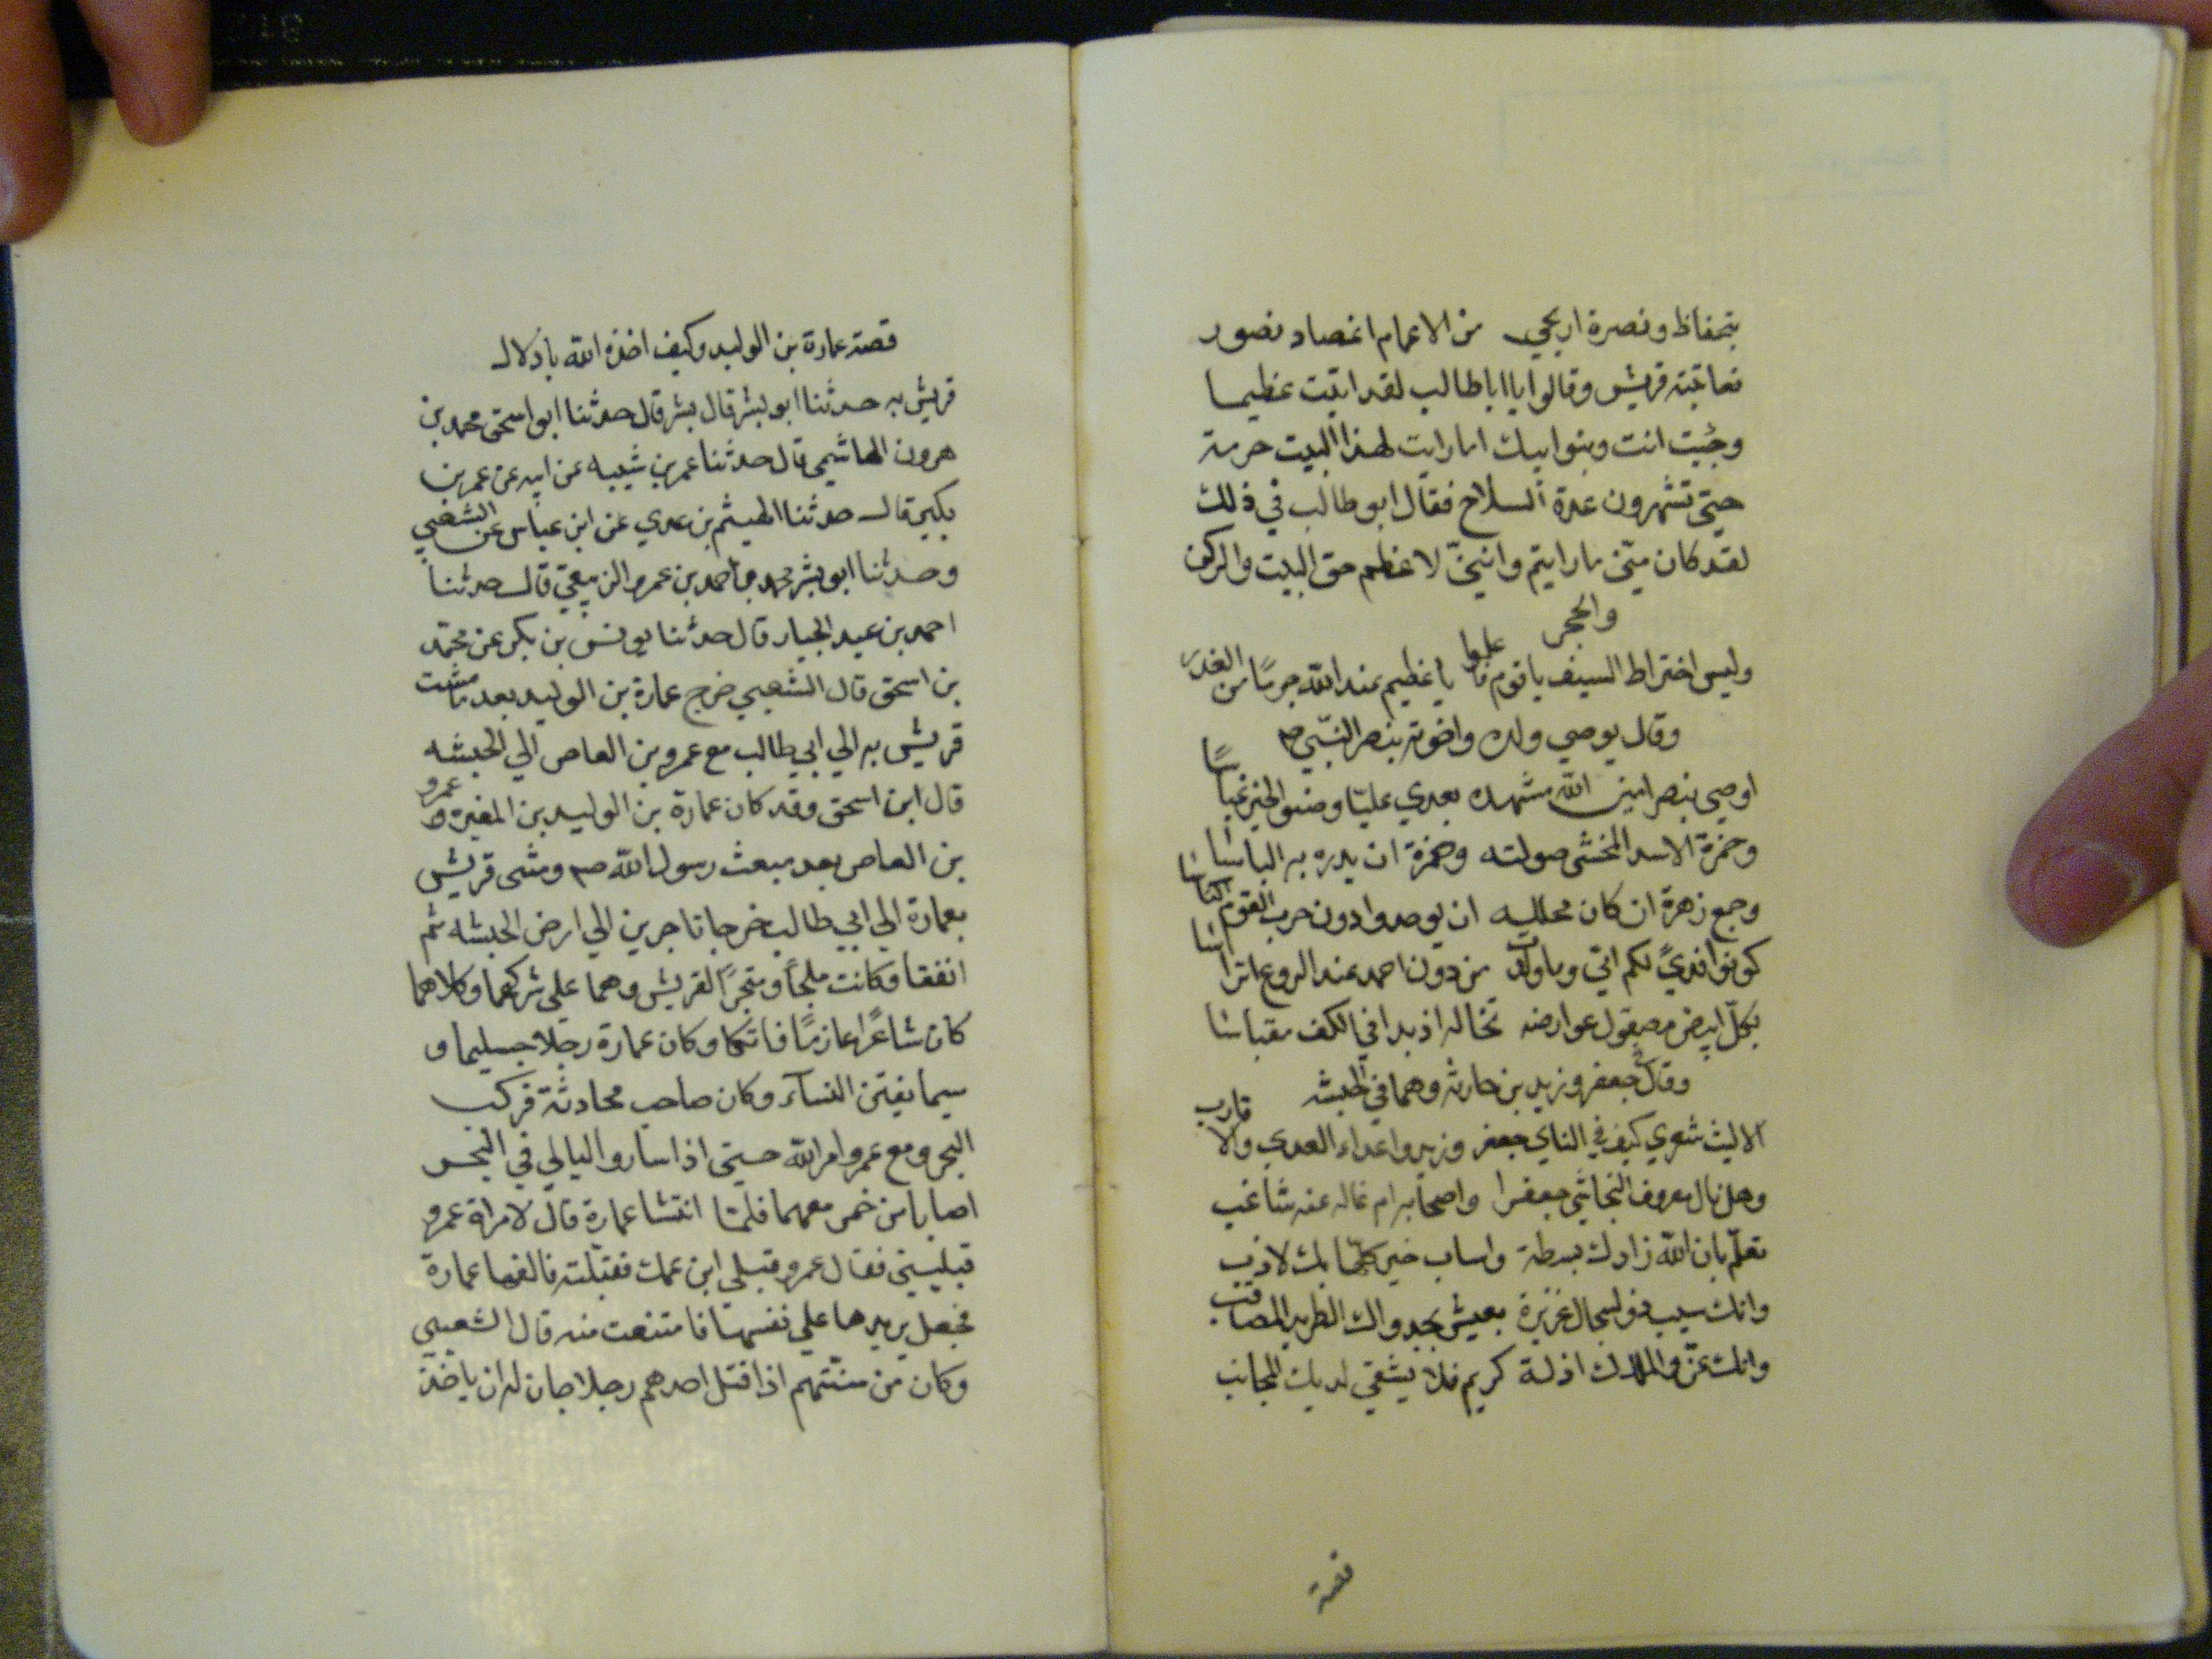 بتحفاظ ونصرة اريحي من الاعمام اغصاد نصور
فعاتبته قريش وقالوا يا ابا طالب لقد اتيت عظيما
وجئت انت وبنوا بيك اما رايت لهذا البيت حرمة
حتى تشهرون عدة السلاح فقال ابو طالب في ذلك
لقد كان منّي ما رايتم وانني لا عظم حق البيت والركن
والحجر
وليس اختراط السيف يا قوم فاعلموا يا عظيم عند الله جرمًا من الغدر
وقال يوصي ولده واخوته بنصر النبي ص
اوصي بنصر امين الله مشهده بعدي عليّا وصنو الخير عباسًا
وحمزة الاسد المخشى صولته وحمزة ان يدره به الباسا
وجمع زهرة ان كان محلليه ان يوصدوا دون حرب القوم الناسا
كونوا فديً لكم اني وما ولدت من دون احمد عند الروع اتراسا
بكلّ ابيض مصقول عوارضه تخاله اذ بدا في الكف مقباسا
وقال في جعفر وزيد بن حارثه وهما في الحبشه
الا ليث شعري كيف في الناي جعفر وزيد واعداء العدي والاقارب
وهل نال معروف النجاشي جعفرا واصحابه ام غاله عنه شاغب
تعلّم بان الله زادك بسطة واساب خير كلها بك لازب
وانك سيب ذو لسجال غزيرة بعيش بجدواك الطريد المصاقب
وانك عزّ والملاك اذلة كريم فلا يشقي لديك المجانب
قصة
قصة عمارة بن الوليد وكيف اخذه الله بادلال
قريش به حدثنا ابو بشر قال بشر قال حدثنا ابو اسحق محمد بن
هرون الهاشمي قال حدثنا عمر بن شيبه عن ابيه عن عمر بن
بكير قال حدثنا الهيثم بن عدي عن ابن عياس عن الشعبي
وحدثنا ابو بشر محمد بن احمد بن عمرو الربيعي قال حدثنا
احمد بن عبد الجبار قال حدثنا يونس بن بكر عن محمد
بن اسحق قال الشعبي خرج عمارة بن الوليد بعد ما مشت
قريش به الي ابي طالب مع عمرو بن العاص الي الحبشه
قال ابن اسحق وقد كان عمارة بن الوليد بن المغيره و عمرو
بن العاص بعد مبعث رسول الله ص ومشى قريش
بعمارة الي ابي طالب خرجا تاجرين الي ارض الحبشه ثم
اتفقا وكانت ملجأ ومتجرًا لقريش وهما علي شركهما وكلاهما
كان شاعرًا عازمًا فاتكا وكان عمارة رجلا جسيما و
سيما يفتن النسآء وكان صاحب محادثة فركب
البحر ومع عمرو امراته حتى اذا سار واليالي في البحر
اصابا من خمر معهما فلمّا انتشا عمارة قال لامراة عمرو
قبليني فقال عمرو قبلي ابن عمك فقبّلته فالفها عمارة
فجعل يريدها علي نفسها فامتنعت منه قال الشعبي
وكان من سنّتهم اذا قتل احدهم رجلا جان له ان ياخذ